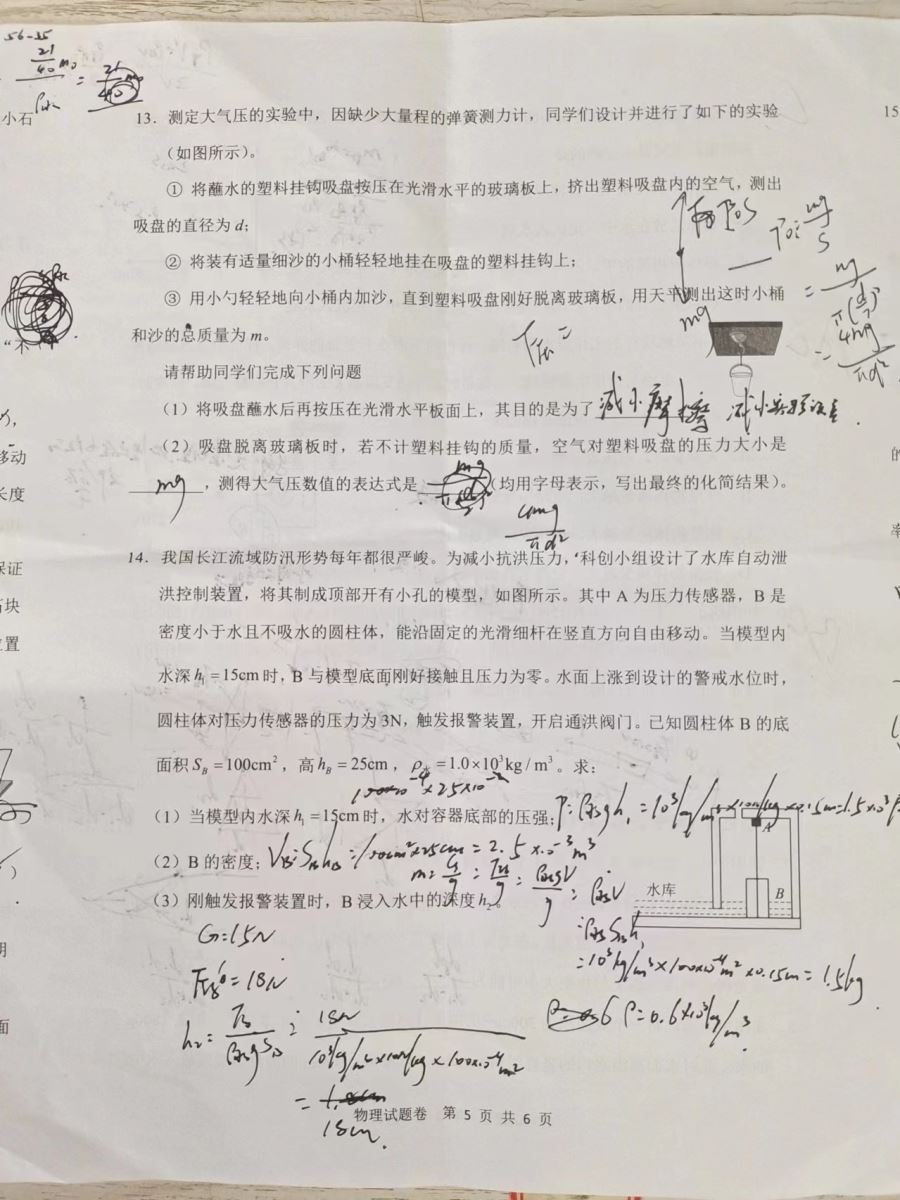 56-35
21
40 m₀
小石
13. 测定大气压的实验中，因缺少大量程的弹簧测力计，同学们设计并进行了如下的实验
（如图所示）。
① 将蘸水的塑料挂钩吸盘按压在光滑水平的玻璃板上，挤出塑料吸盘内的空气，测出
吸盘的直径为 d；
② 将装有适量细沙的小桶轻轻地挂在吸盘的塑料挂钩上；
③ 用小勺轻轻地向小桶内加沙，直到塑料吸盘刚好脱离玻璃板，用天平测出这时小桶
和沙的总质量为 m。
mg
请帮助同学们完成下列问题
（1）将吸盘蘸水后再按压在光滑水平板面上，其目的是为了 减小摩擦
（2）吸盘脱离玻璃板时，若不计塑料挂钩的质量，空气对塑料吸盘的压力大小是
mg ，测得大气压数值的表达式是 （均用字母表示，写出最终的化简结果）。
4mg
πd²
14. 我国长江流域防汛形势每年都很严峻。为减小抗洪压力，科创小组设计了水库自动泄
洪控制装置，将其制成顶部开有小孔的模型，如图所示。其中 A 为压力传感器，B 是
密度小于水且不吸水的圆柱体，能沿固定的光滑细杆在竖直方向自由移动。当模型内
水深 h₁ = 15cm 时，B 与模型底面刚好接触且压力为零。水面上涨到设计的警戒水位时，
圆柱体对压力传感器的压力为 3N，触发报警装置，开启通洪阀门。已知圆柱体 B 的底
面积 S_B = 100cm²，高 h_B = 25cm，ρ水 = 1.0×10³kg/m³。求：
（1）当模型内水深 h₁ = 15cm 时，水对容器底部的压强；
（2）B 的密度；V_B = S_B h_B = 100cm²×25cm = 2.5×10⁻³m³
（3）刚触发报警装置时，B 浸入水中的深度 h₂。
水库
A
B
=10³kg/m³×100×10⁻⁴m²×0.15m=1.5kg
G=15N
F浮'=18N
ρ=0.6×10³kg/m³
18N
10³kg/m³×10N/kg×100×10⁻⁴m²
=
18cm.
物理试题卷 第 5 页 共 6 页
15
移动
长度
保证
石块
位置
面